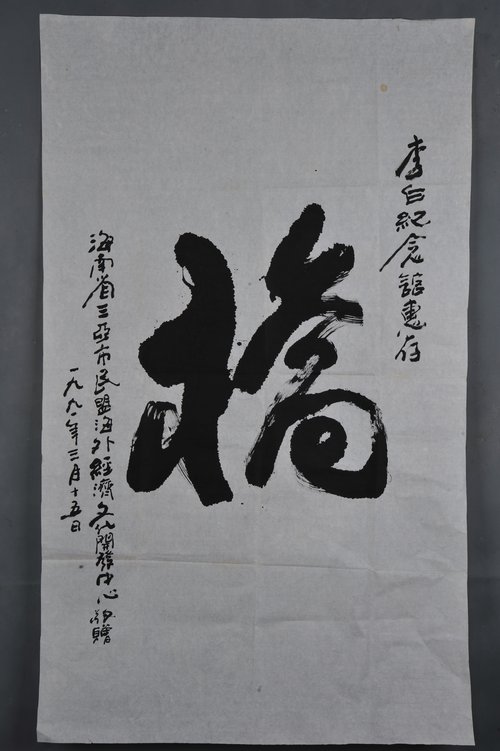 李白纪念館惠存
橋
海南省三亞市民盟海外經濟文化開發中心敬贈
一九九〇年三月十五日